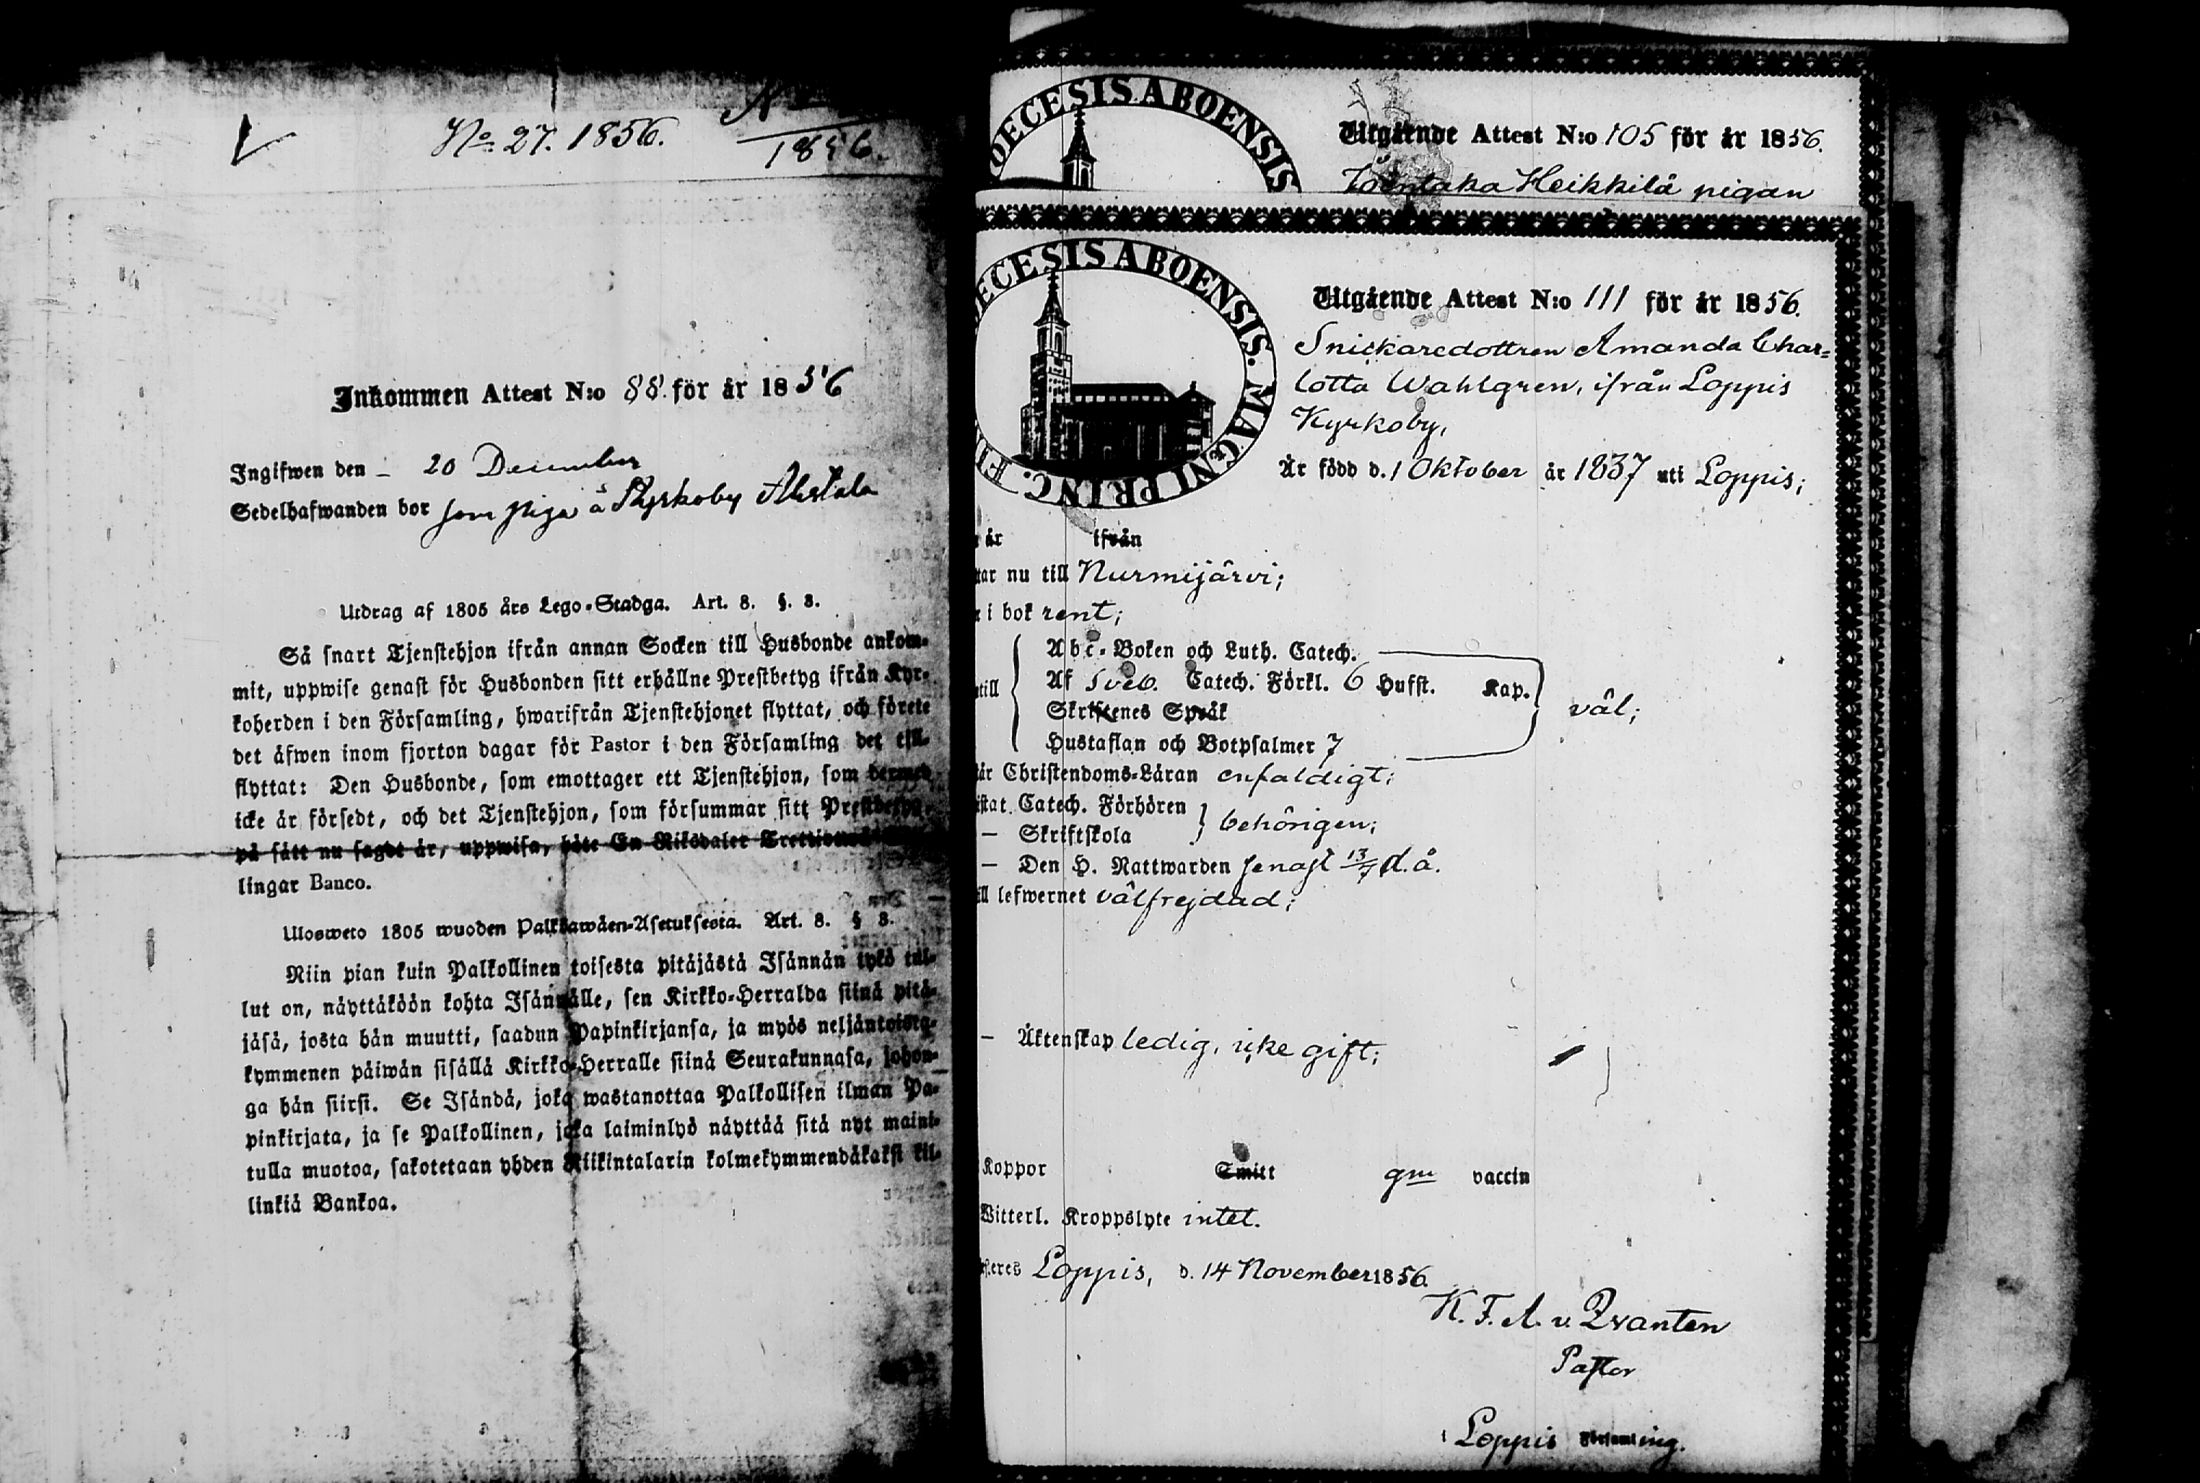 No 27. 1856.
1856.
Inkommen Attest N:o 88. för år 1856
Ingifwen den – 20 December
Sedelhafwanden bor som piga å Kyrkoby Ahstala
Utdrag af 1805 års Lego-Stadga. Art. 8. §. 8.
Så snart Tjenstehjon ifrån annan Socken till Husbonde ankom-
mit, uppwise genast för Husbonden sitt erhållne Prestbetyg ifrån Kyr-
koherden i den Församling, hwarifrån Tjenstehjonet flyttat, och förete
det äfwen inom fjorton dagar för Pastor i den Församling det till-
flyttat: Den Husbonde, som emottager ett Tjenstehjon, som dermed
icke är försedt, och det Tjenstehjon, som försummar sitt Prestbetyg,
på sätt nu sagdt är, uppwisa, böte En Riksdaler
lingar Banco.
Ulosweto 1805 wuoden Palkkawäen-Asetuksesta. Art. 8. § 8.
Niin pian kuin Palkollinen toisesta pitäjästä Isännän tykö tul-
lut on, näyttäköön kohta Isännälle, sen Kirkko-Herralda siinä pitä-
jäsä, josta hän muutti, saadun Papinkirjansa, ja myös neljäntoista-
kymmenen päiwän sisällä Kirkko-Herralle siinä Seurakunnasa, johon-
ga hän siirsi. Se Isändä, joka wastanottaa Palkollisen ilman Pa-
pinkirjata, ja se Palkollinen, joka laiminlyö näyttää sitä nyt maini-
tulla muotoa, sakotetaan yhden Riikintalarin kolmekymmendäkaksi kil-
linkiä Bankoa.
OECESIS ABOENSIS
Utgående Attest N:o 105 för år 1856.
Heikkilä pigan
ECESIS ABOENSIS. MAGNI PRINC. FI
Utgående Attest N:o 111 för år 1856.
Snickaredottren Amanda Char=
lotta Wahlgren, ifrån Loppis
Kyrkoby,
Är född d. 1 Oktober år 1837 uti Loppis;
är ifrån
tar nu till Nurmijärvi;
i bok rent;
Abc-Boken och Luth. Catech.
till Af Sveb. Catech. Förkl. 6 Hufst. Kap. väl;
Skriftenes Språk
Hustaflan och Botpsalmer 7
är Christendoms-Läran enfaldigt;
istat Catech. Förhören
– Skriftskola behörigen;
– Den H. Nattwarden senast 13/7 d. å.
ill lefwernet välfrejdad;
– Äktenskap ledig, icke gift;
Koppor Smitt gm vaccin
Witterl. Kroppslyte intet.
steres Loppis, d. 14 November 1856.
K. F. A. v. Qvanten
Pastor
i Loppis Församling.